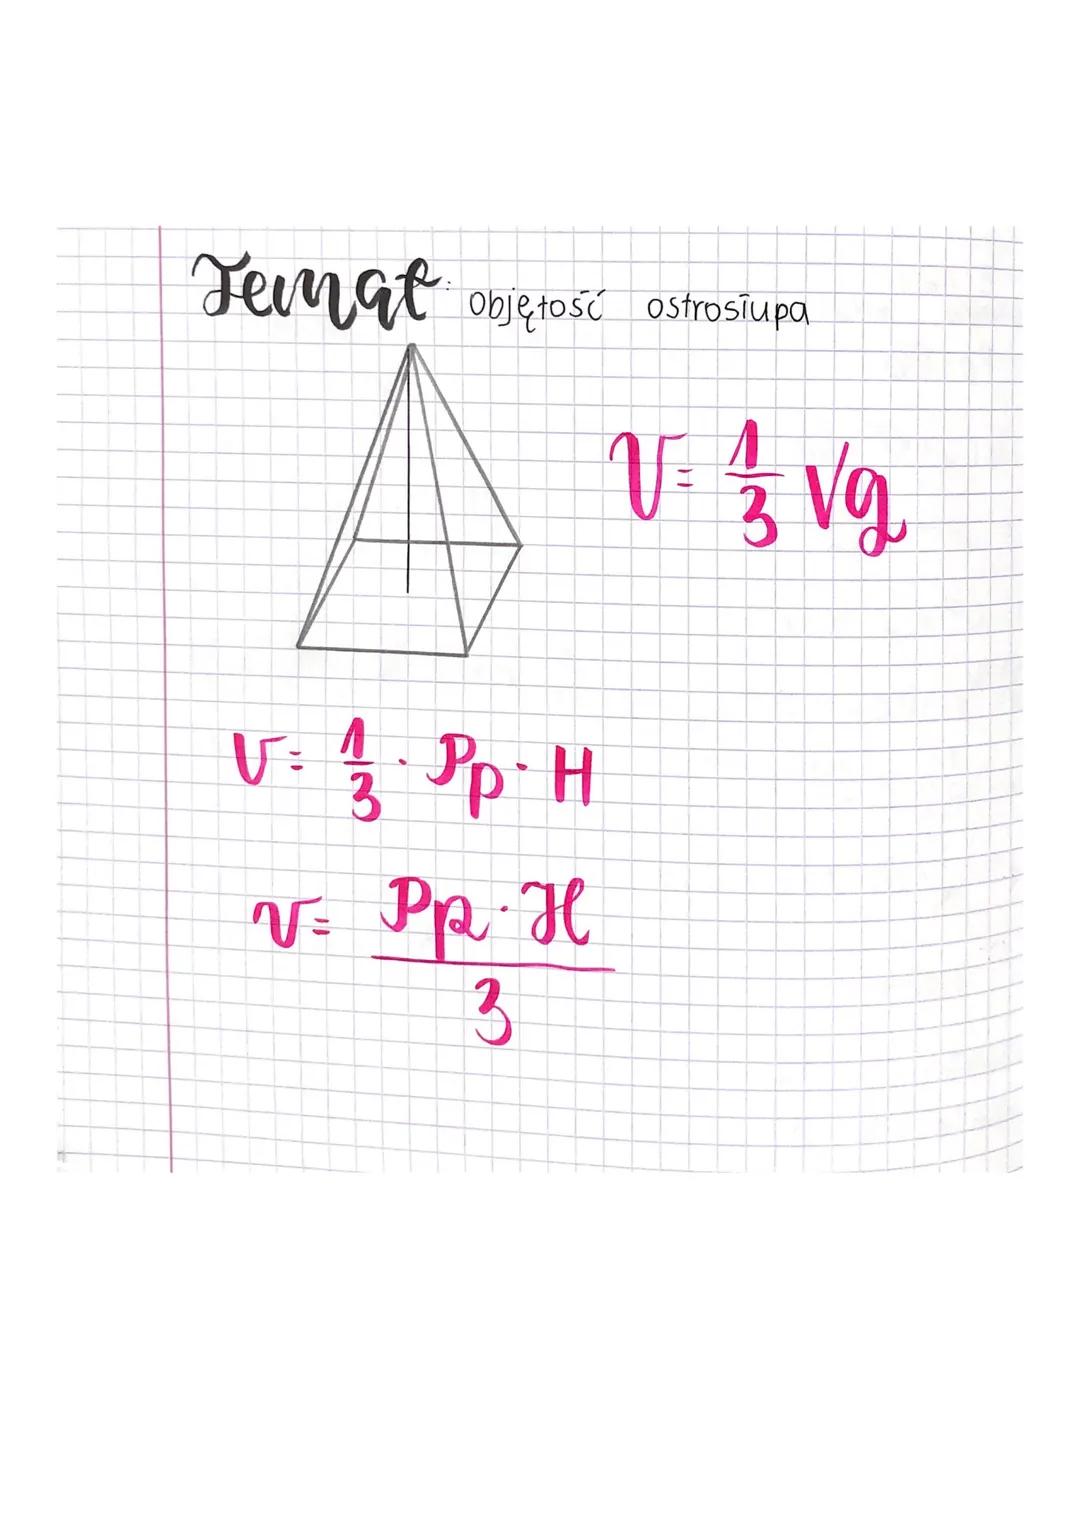 Temat: objętość ostrosłupa
V = 1/3 Vg
V = 1/3 · Pp · H
V = Pp · H / 3